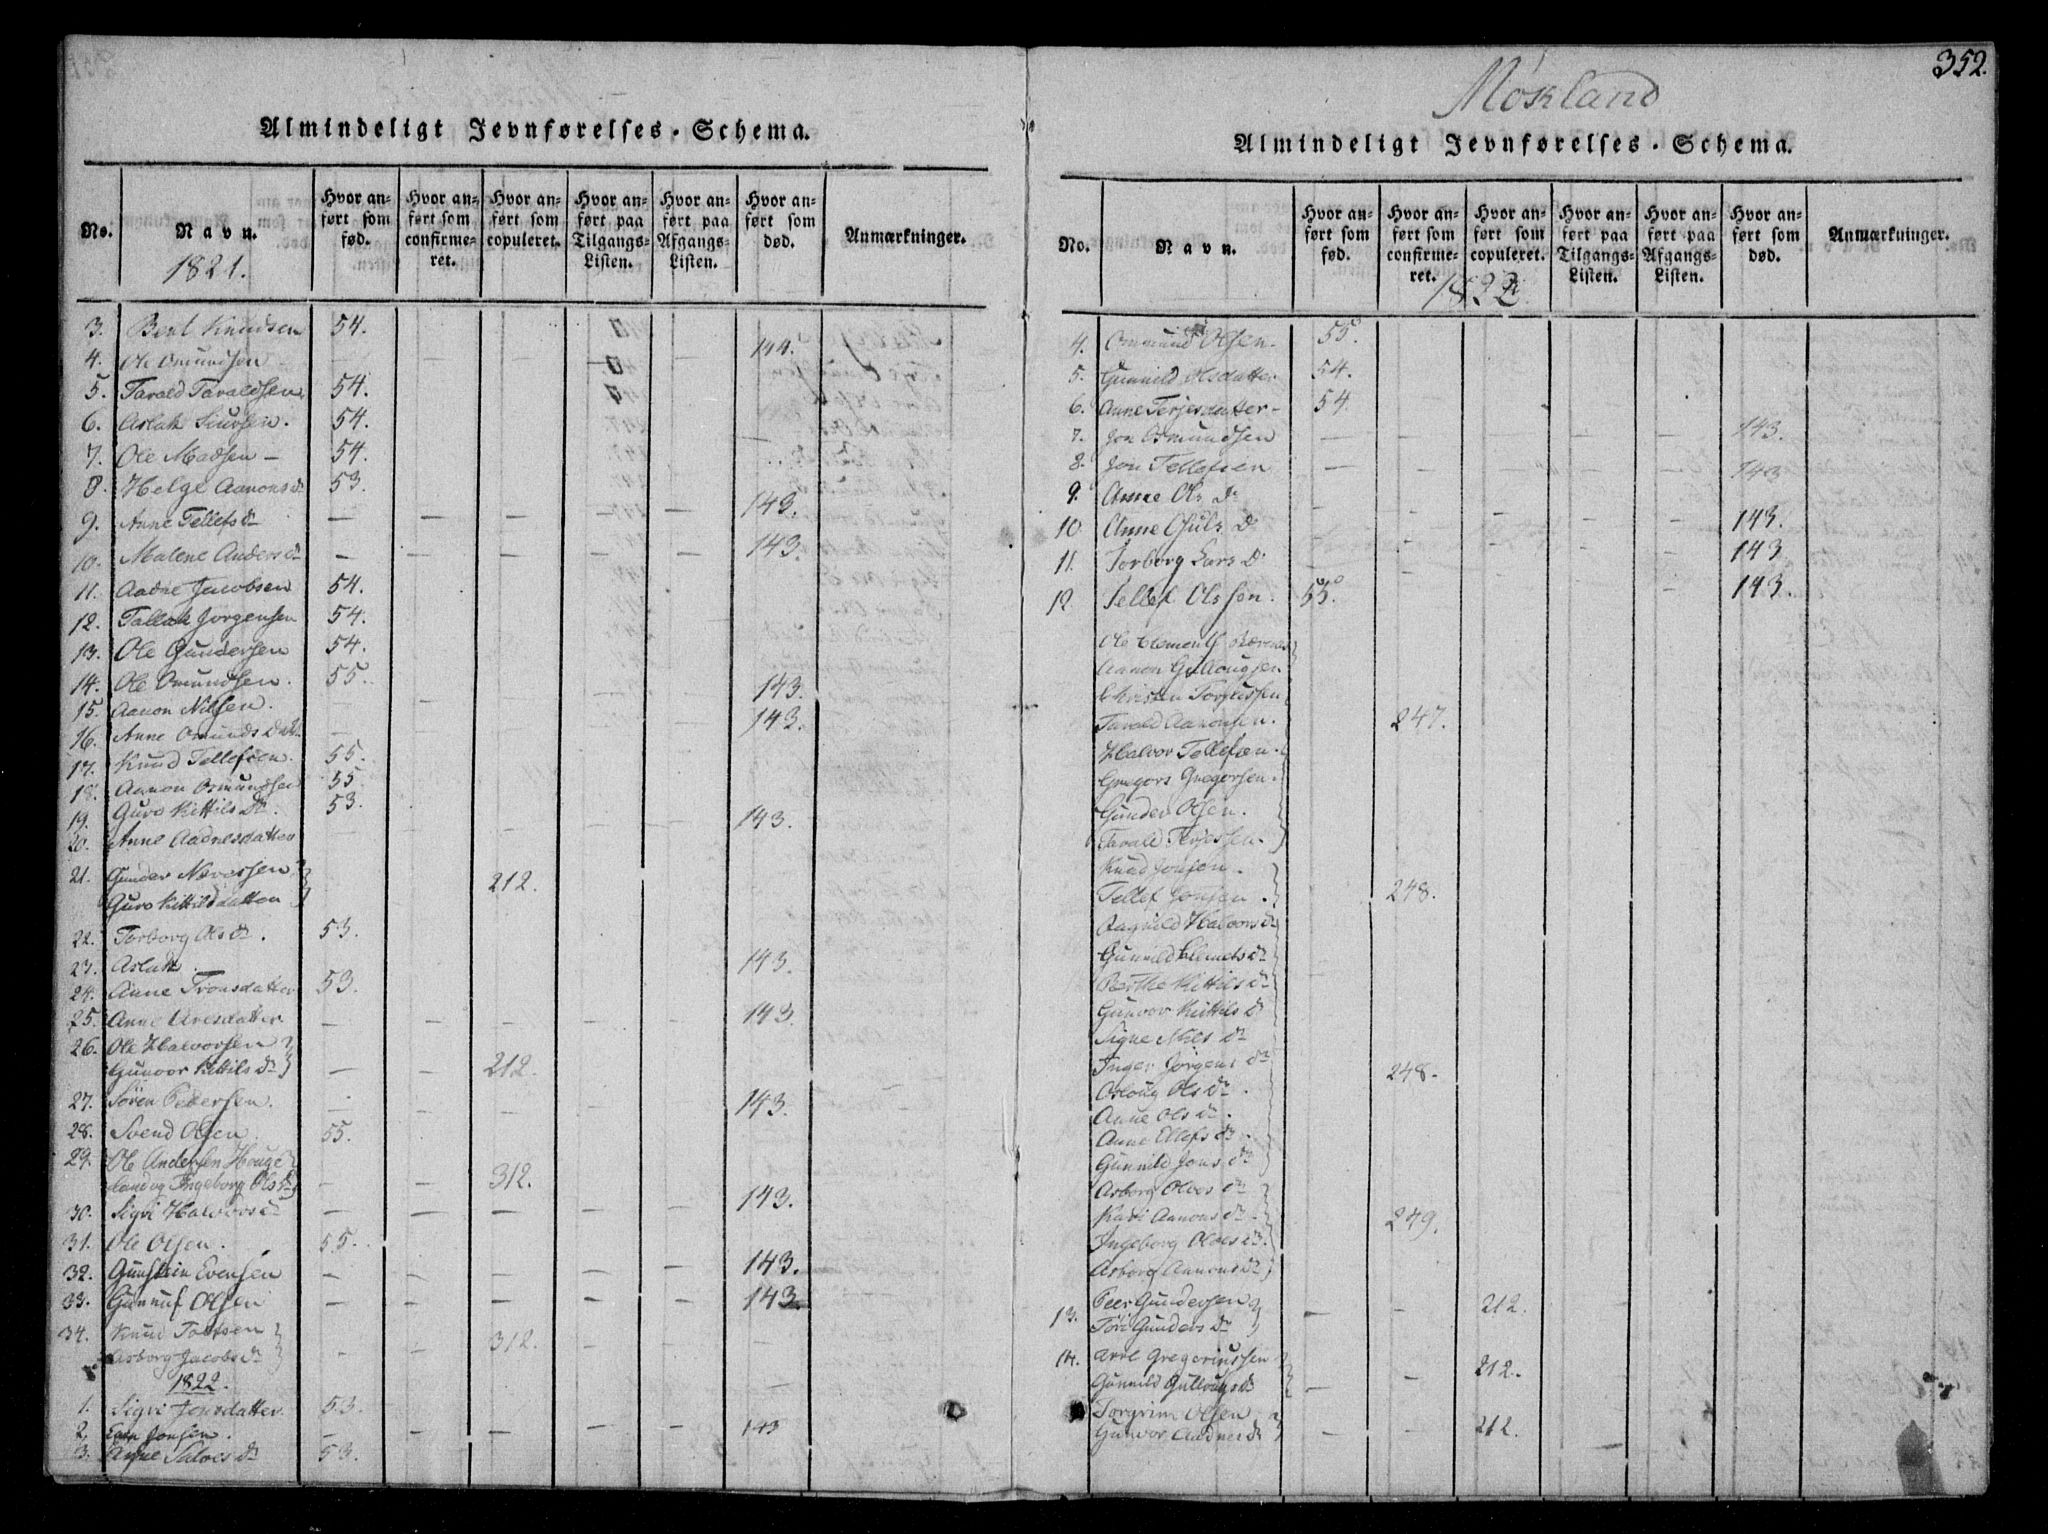 Almindeligt Jevnførelses-Schema.
No.
Navn.
1821.
Hvor anført som fød.
Hvor anført som confirmeret.
Hvor anført som copuleret.
Hvor anført paa Tilgangs-Listen.
Hvor anført paa Afgangs-Listen.
Hvor anført som død.
Anmærkninger.
3. Bent Knudsen 54.
4. Ole Omundsen 144.
5. Tarald Taraldsen 54.
6. Aslak Siursen. 54.
7. Ole Madsen - 54.
8. Helge Aanonsdr 53.
9. Anne Tellefsdr — — — 143.
10. Malene Andersdr — — — 143.
11. Aadne Jacobsen 54.
12. Tallak Jorgensen 54.
13. Ole Gundersen 54.
14. Ole Omundsen. 55.
15. Aanon Nilsen. — 143.
16. Anne Omunds Datr. — 143.
17. Knud Tellefsen. 55.
18. Aanon Osmundsen 55
19. Guro Kittilsdr. 53.
20. Anne Aadnesdatter 143.
21. Gunder Næresen
Guro Kittilsdatter 212.
22. Torborg Olsdr. 53.
23. Aslak 143.
24. Anne Tronsdatter 53.
25. Anne Aresdatter — — — 143.
26. Ole Halvorsen
Gunvor Kittilsdr — — 212.
27. Sören Pedersen. — — — 143.
28. Svend Olsen 55.
29. Ole Andersen Houge
land og Ingeborg Olsdr — — 312.
30. Sigri Halvorsdr — — — 143.
31. Ole Olsen. 55.
32. Gunstein Evensen — — — 143.
33. Gunnuf Olsen — — — 143.
34. Knud Tortsen
Asborg Jacobsdr — — 312.
1822.
1. Sigri Jonsdatter 53.
2. Even Jonsen. — — — 143
3. Anne Salvesdr 53.
352.
Møskland
Almindeligt Jevnførelses-Schema.
No.
Navn.
Hvor anført som fød.
Hvor anført som confirmeret.
Hvor anført som copuleret.
Hvor anført paa Tilgangs-Listen.
Hvor anført paa Afgangs-Listen.
Hvor anført som død.
Anmærkninger.
1822
4. Ommund Olsen. 55.
5. Gunnild Olsdatter 54.
6. Anne Terjesdatter - 54.
7. Jon Osmundsen — — — 143.
8. Jon Tellefsen — — — 143
9. Anne Ols Dr
10 Anne Guls D. 143.
11. Torborg Lars D. 143
12 Tellef Olssen. 55. 143.
Ole Clementsen
Aanon Gullougsen
Christen Torgussen
Tarald Aanonsen. 247.
Halvor Tellefsen.
Gregors Gregorsen.
Gunder Olsen.
Tarald Terjessen.
Knud Jonsen.
Tellef Jonsen. 248.
Ragnild Halvorsdr
Gunnild Clemetsdr
Berthe Kittilsdr
Gunvor Kittilsdr
Signe Nils Dr
Inger Jörgensdr 248.
Osloug Olsdr.
Anne Olsdr.
Anne Ellefsdr.
Gunnild Jonsdr
Asborg Olvesdr
Kari Aanonsdr. 249.
Ingeborg Olvesdr.
Asborg Aanonsdr
13. Peer Gundersen
Tori Gundersdr — — 212.
14. Arve Gregoriussen
Gunnild Gullougsdr — — 212.
Torgrim Olsen
Gunvor Aadnesdr — — 212.